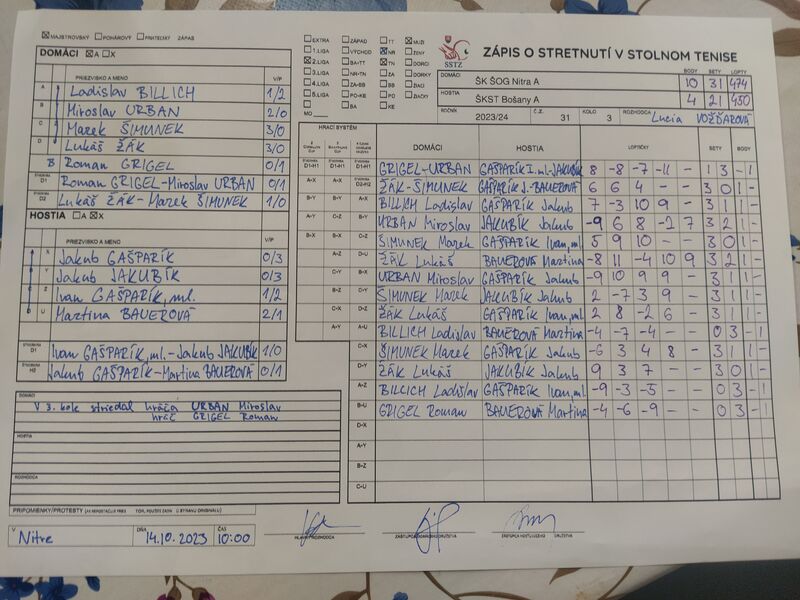 MAJSTROVSKÝ POHÁROVÝ PRIATEĽSKÝ ZÁPAS
DOMÁCI A X
PRIEZVISKO A MENO V/P
A Ladislav BILLICH 1/2
B Miroslav URBAN 2/0
C Marek ŠIMUNEK 3/0
D Lukáš ŽÁK 3/0
B Roman GRIGEL 0/1
D1 Roman GRIGEL-Miroslav URBAN 0/1
D2 Lukáš ŽÁK-Marek ŠIMUNEK 1/0
HOSTIA A X
PRIEZVISKO A MENO V/P
X Jakub GAŠPARÍK 0/3
Y Jakub JAKUBÍK 0/3
Z Ivan GAŠPARÍK, ml. 1/2
U Martina BAUEROVÁ 2/1
D1 Ivan GAŠPARÍK, ml.-Jakub JAKUBÍK 1/0
Jakub GAŠPARÍK-Martina BAUEROVÁ 0/1
DOMÁCI
V 3. kole striedal hráča URBAN Miroslav
hráč GRIGEL Roman
HOSTIA
ROZHODCA
PRIPOMIENKY/PROTESTY
V Nitre DŇA 14.10.2023 ČAS 10:00
EXTRA ZÁPAD TT MUŽI
1. LIGA VÝCHOD NR ŽENY
2. LIGA BA-TT TN DORCI
3. LIGA NR-TN ZA DORKY
4. LIGA ZA-BB BB ŽIACI
5. LIGA PO-KE PO ŽIAČKY
MO BA KE
SSTZ
ZÁPIS O STRETNUTÍ V STOLNOM TENISE
BODY SETY LOPTY
DOMÁCI ŠK ŠOG Nitra A 10 31 474
HOSTIA ŠKST Bošany A 4 21 450
ROČNÍK 2023/24 Č.Z. 31 KOLO 3 ROZHODCA Lucia VOŽĎAROVÁ
HRACÍ SYSTÉM DOMÁCI HOSTIA LOPTIČKY SETY BODY
D1-H1 D1-H1 D1-H1 GRIGEL-URBAN GAŠPARÍK I. ml.-JAKUBÍK 8 -8 -7 -11 - 1 3 - 1
A-X A-X D2-H2 ŽÁK-ŠIMUNEK GAŠPARÍK J.-BAUEROVÁ 6 6 4 - - 3 0 1 -
B-Y B-Y A-X BILLICH Ladislav GAŠPARÍK Jakub 7 -3 10 9 - 3 1 1 -
A-Y C-Z B-Y URBAN Miroslav JAKUBÍK Jakub -9 6 8 -2 7 3 2 1 -
B-X B-X C-Z ŠIMUNEK Marek GAŠPARÍK Ivan, ml. 5 9 10 - - 3 0 1 -
A-Z D-U ŽÁK Lukáš BAUEROVÁ Martina -8 11 -4 10 9 3 2 1 -
C-Y B-X URBAN Miroslav GAŠPARÍK Jakub -9 10 9 9 - 3 1 1 -
B-Z C-Y ŠIMUNEK Marek JAKUBÍK Jakub 2 -7 3 9 - 3 1 1 -
C-X D-Z ŽÁK Lukáš GAŠPARÍK Ivan, ml. 2 8 -2 6 - 3 1 1 -
A-Y A-U BILLICH Ladislav BAUEROVÁ Martina -4 -7 -4 - - 0 3 - 1
C-X ŠIMUNEK Marek GAŠPARÍK Jakub -6 3 4 8 - 3 1 1 -
D-Y ŽÁK Lukáš JAKUBÍK Jakub 9 3 7 - - 3 0 1 -
A-Z BILLICH Ladislav GAŠPARÍK Ivan, ml. -9 -3 -5 - - 0 3 - 1
B-U GRIGEL Roman BAUEROVÁ Martina -4 -6 -9 - - 0 3 - 1
D-X
A-Y
B-Z
C-U
HLAVNÝ ROZHODCA ZÁSTUPCA DOMÁCEHO DRUŽSTVA ZÁSTUPCA HOSŤUJÚCEHO DRUŽSTVA